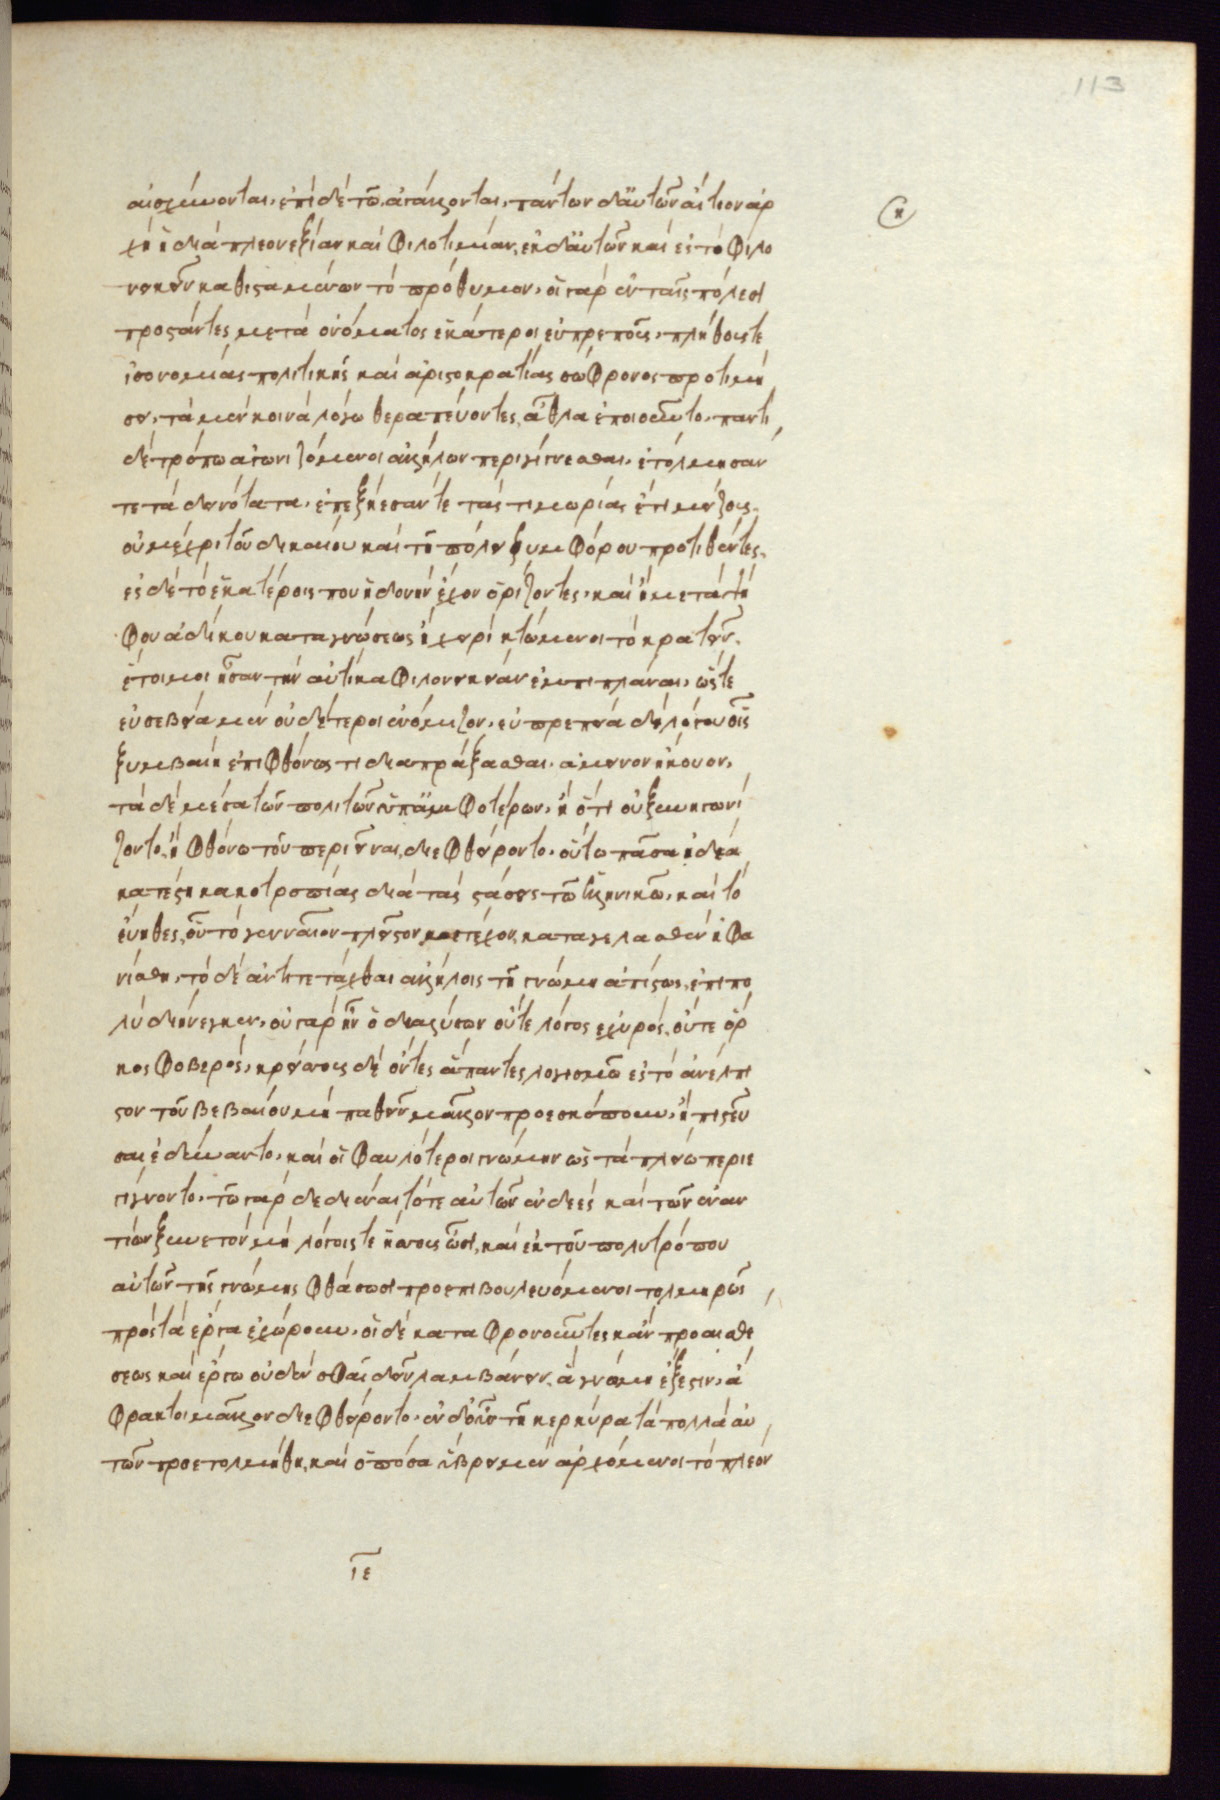 113
αἰσχύνονται, ἐπὶ δὲ τῶ, ἀγάλλονται, πάντων δ' αὐτῶν αἴτιον ἀρ
χὴ ἡ διὰ πλεονεξίαν καὶ φιλοτιμίαν, ἐκ δ' αὐτῶν καὶ ἐς τὸ φιλο
νεικεῖν καθισταμένων τὸ πρόθυμον. οἱ γὰρ ἐν ταῖς πόλεσι
προστάντες, μετὰ ὀνόματος ἑκάτεροι εὐπρεποῦς, πλήθους τε
ἰσονομίας πολιτικῆς καὶ ἀριστοκρατίας σώφρονος προτιμή
σει, τὰ μὲν κοινὰ λόγω θεραπεύοντες, ἆθλα ἐποιοῦντο. παντὶ
δὲ τρόπω ἀγωνιζόμενοι ἀλλήλων περιγίγνεσθαι, ἐτόλμησάν
τε τὰ δεινότατα, ἐπεξήεσάν τε τὰς τιμωρίας ἔτι μείζους,
οὐ μέχρι τοῦ δικαίου καὶ τῆ πόλει ξυμφόρου προτιθέντες,
ἐς δὲ τὸ ἑκατέροις που ἡδονὴν ἔχον ὁρίζοντες, καὶ ἢ μετὰ ψή
φου ἀδίκου καταγνώσεως ἢ χειρὶ κτώμενοι τὸ κρατεῖν,
ἑτοῖμοι ἦσαν τὴν αὐτίκα φιλονεικίαν ἐκπιπλάναι, ὥστε
εὐσεβείᾳ μὲν οὐδέτεροι ἐνόμιζον, εὐπρεπείᾳ δὲ λόγου οἷς
ξυμβαίη ἐπιφθόνως τι διαπράξασθαι, ἄμεινον ἤκουον,
τὰ δὲ μέσα τῶν πολιτῶν ὑπ' ἀμφοτέρων, ἢ ὅτι οὐ ξυνηγωνί
ζοντο, ἢ φθόνω τοῦ περιεῖναι, διεφθείροντο. οὕτω πᾶσα ἰδέα
κατέστη κακοτροπίας διὰ τὰς στάσεις τῶ ἑλληνικῶ, καὶ τὸ
εὔηθες, οὗ τὸ γενναῖον πλεῖστον μετέχον, καταγελασθὲν ἠφα
νίσθη, τὸ δὲ ἀντιτετάχθαι ἀλλήλοις τῆ γνώμη ἀπίστως, ἐπιπο
λὺ διήνεγκεν, οὐ γὰρ ἦν ὁ διαλύσων οὔτε λόγος ἐχυρός, οὔτε ὅρ
κος φοβερός, κρείσσους δὲ ὄντες ἅπαντες λογισμῶ ἐς τὸ ἀνέλπι
στον τοῦ βεβαίου μὴ παθεῖν μᾶλλον προεσκόπουν, ἢ πιστεῦ
σαι ἐδύναντο, καὶ οἱ φαυλότεροι γνώμην ὡς τὰ πλείω περιε
γίγνοντο, τῶ γὰρ δεδιέναι τό τε αὑτῶν ἐνδεὲς καὶ τῶν ἐναν
τίων ξυνετὸν μὴ λόγοις τε ἥσσους ὦσι, καὶ ἐκ τοῦ πολυτρόπου
αὐτῶν τῆς γνώμης φθάσωσι προεπιβουλευόμενοι, τολμηρῶς
πρὸς τὰ ἔργα ἐχώρουν. οἱ δὲ καταφρονοῦντες κἂν προαισθέ
σεως καὶ ἔργω οὐδὲν σφᾶς δεῖν λαμβάνειν, ἃ γνώμη ἔξεστιν, ἄ
φρακτοι μᾶλλον διεφθείροντο. ἐν δ' οὖν τῆ κερκύρα τὰ πολλὰ αὐ
τῶν προετολμήθη, καὶ ὁπόσα ὕβρει μὲν ἀρχόμενοι τὸ πλέον
ιε